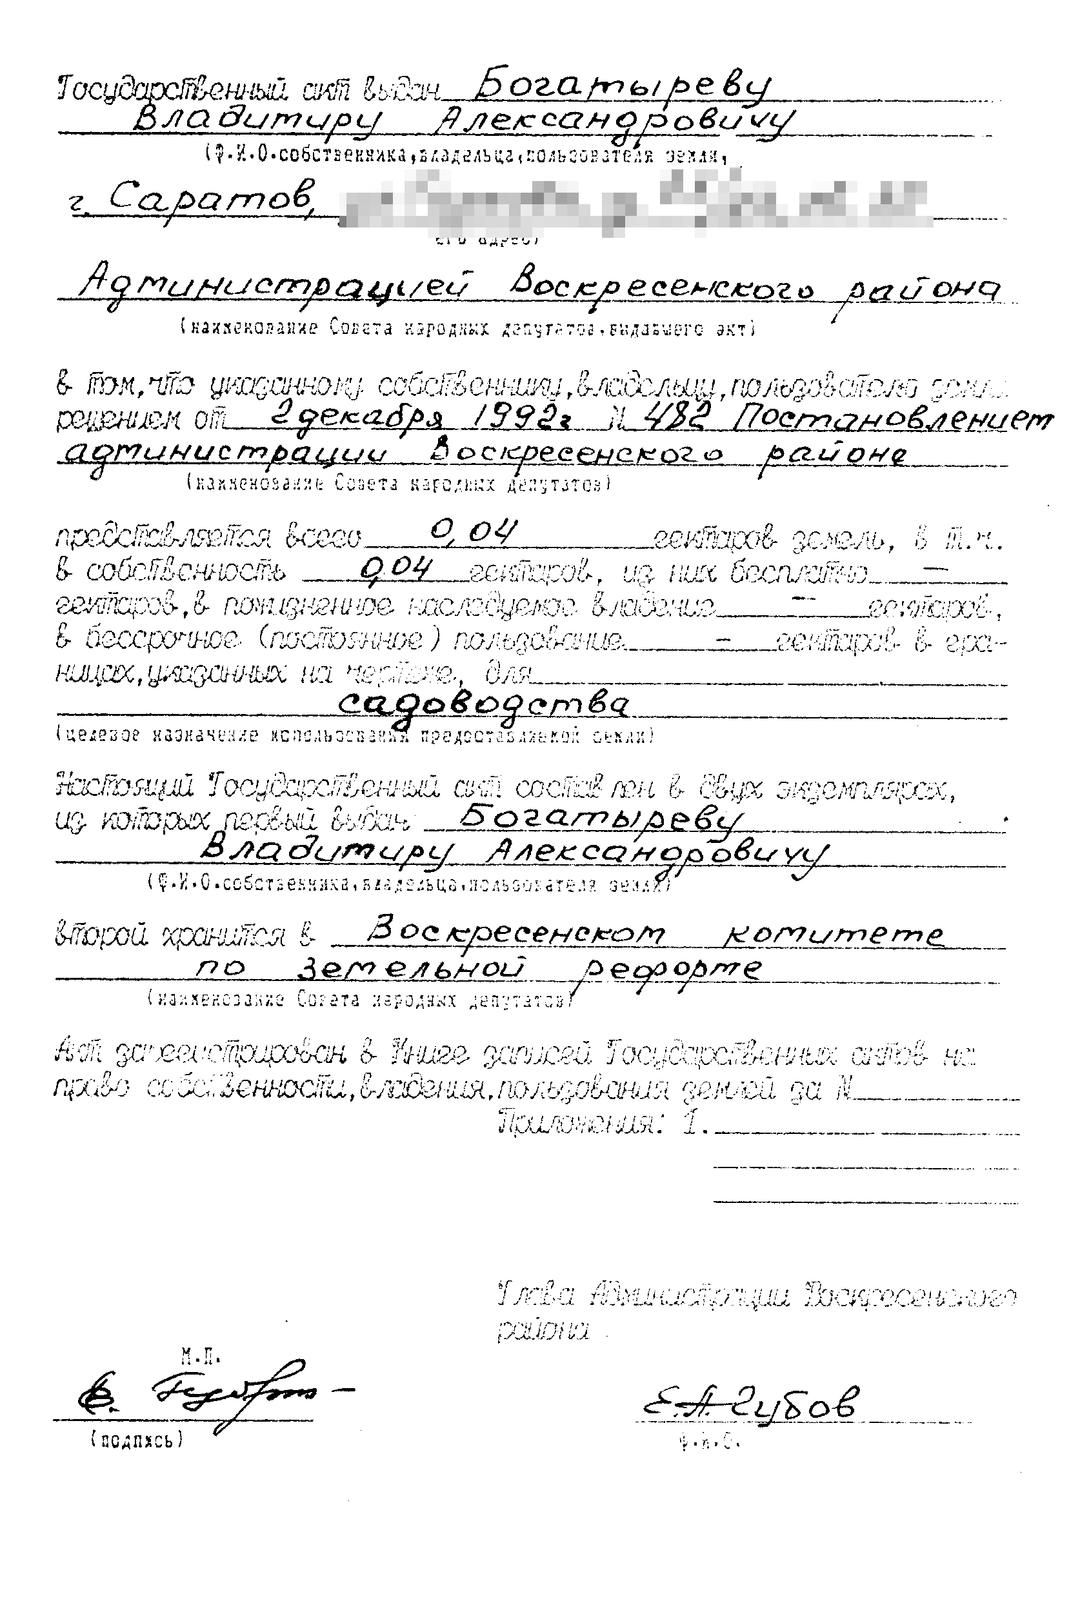 Государственный акт выдан Богатыреву
Владимиру Александровичу
(Ф.И.О.собственника,владельца,пользователя земли,
г. Саратов,
его адрес)
Администрацией Воскресенского района
(наименование Совета народных депутатов,выдавшего акт)
в том,что указанному собственнику,владельцу,пользователю земли
решением от 2 декабря 1992г N 482 Постановлением
администрации Воскресенского района
(наименование Совета народных депутатов)
представляется всего 0,04 гектаров земель, в т.ч.
в собственность 0,04 гектаров, из них бесплатно —
гектаров,в пожизненное наследуемое владение — гектаров,
в бессрочное (постоянное) пользование - гектаров в гра-
ницах,указанных на чертеже, для
садоводства
(целевое назначение использования предоставляемой земли)
Настоящий Государственный акт составлен в двух экземплярах,
из которых первый выдан Богатыреву
Владимиру Александровичу
(Ф.И.О.собственника,владельца,пользователя земли)
второй хранится в Воскресенском комитете
по земельной реформе
(наименование Совета народных депутатов)
Акт зарегистрирован в Книге записей Государственных актов на
право собственности,владения,пользования землей за N
Приложения: 1.
Глава Администрации Воскресенского
района
М.П.
Е.А.Губов
(подпись) Ф.И.О.